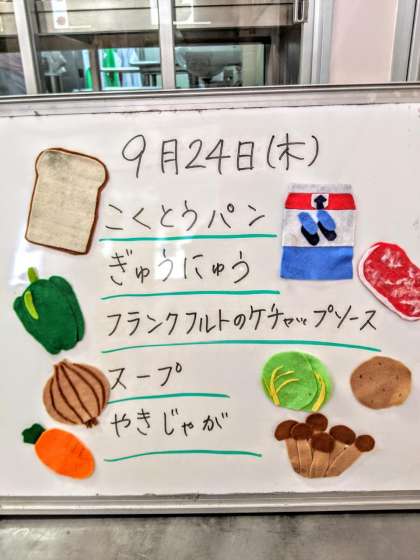 9月24日(木)
こくとうパン
ぎゅうにゅう
フランクフルトのケチャップソース
スープ
やきじゃが